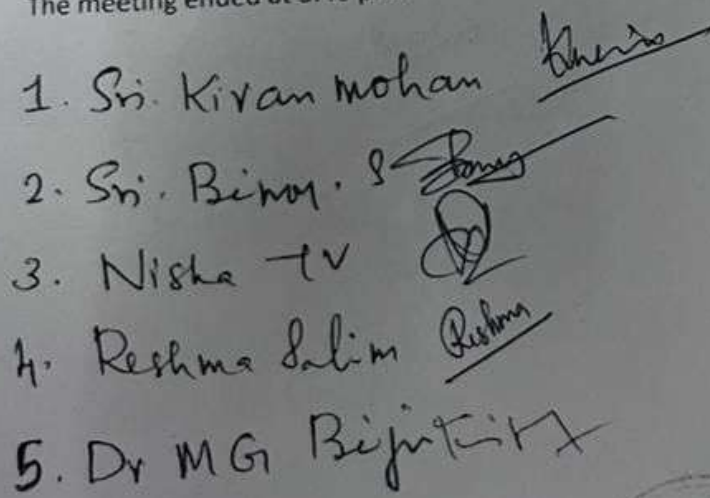 The meeting ended at
1. Sri. Kiran mohan
2. Sri. Binoy. S
3. Nisha TV
4. Reshma Salim Reshma
5. Dr MG